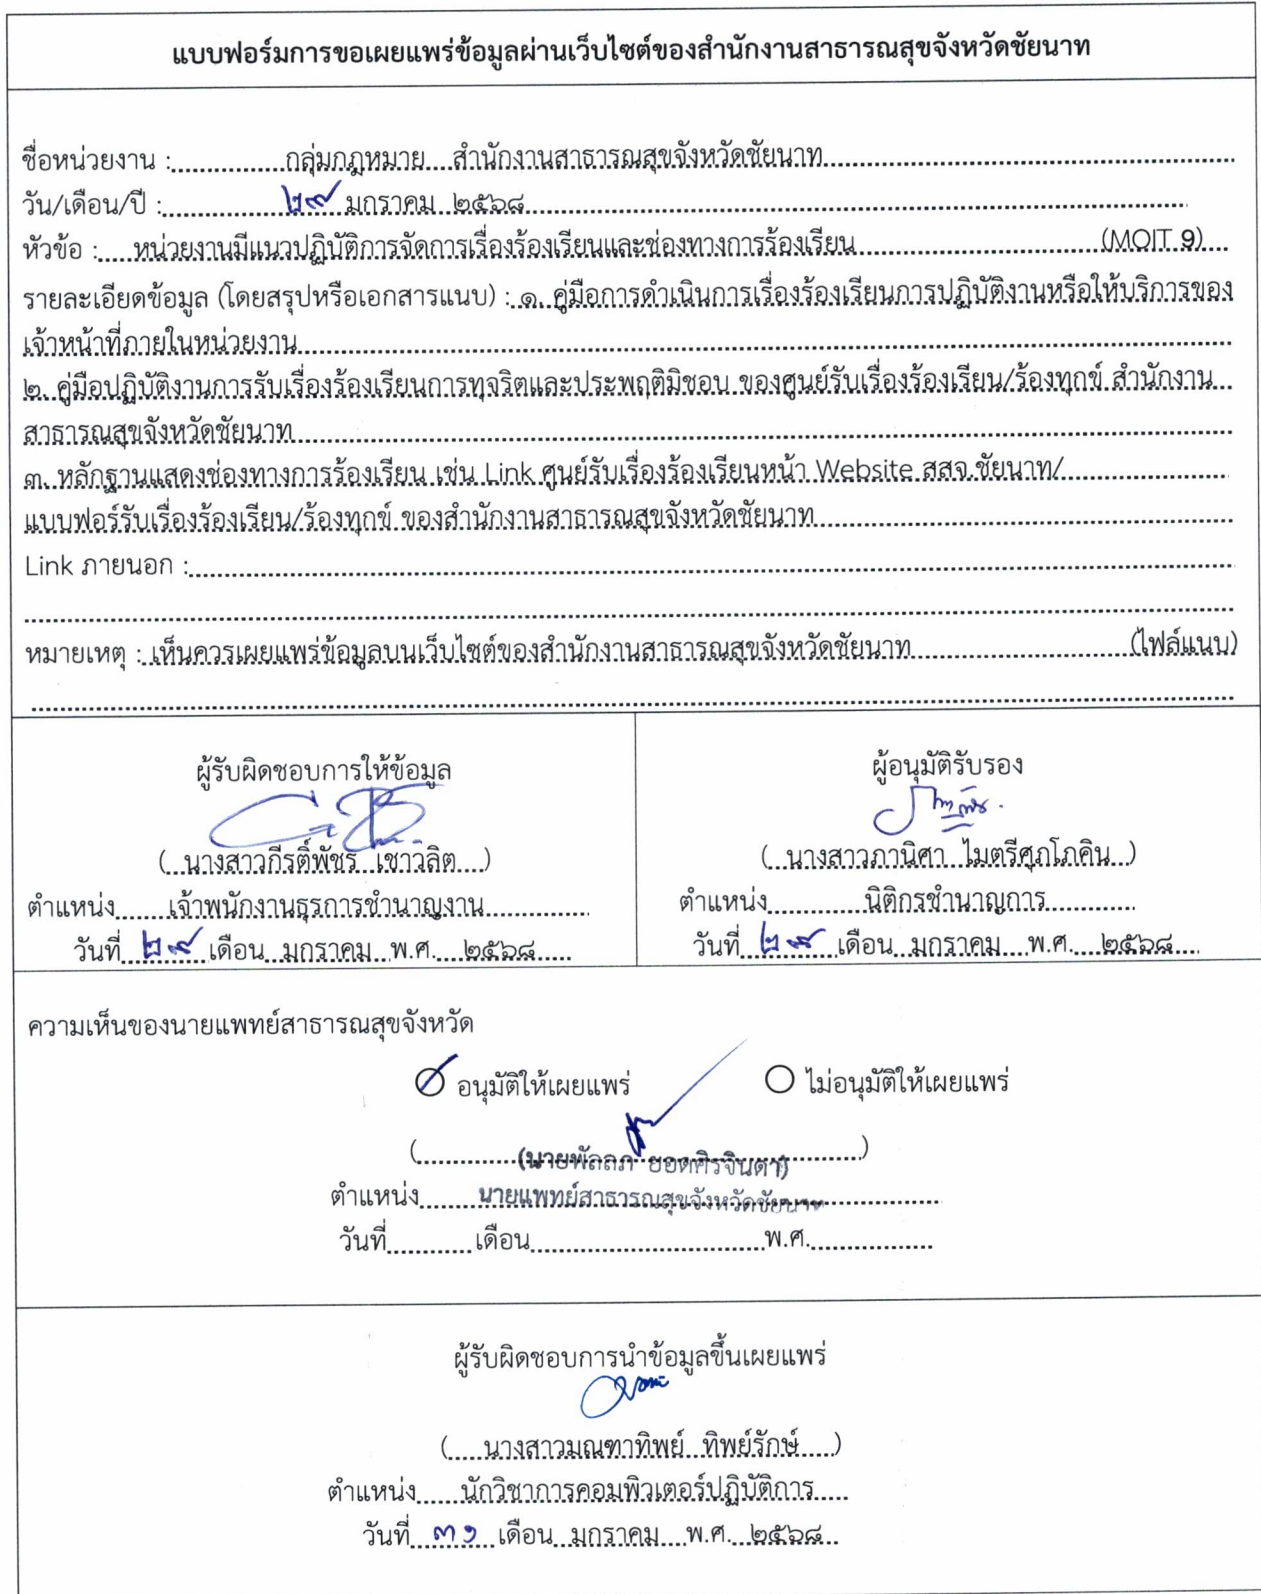 แบบฟอร์มการขอเผยแพร่ข้อมูลผ่านเว็บไซต์ของสำนักงานสาธารณสุขจังหวัดชัยนาท
ชื่อหน่วยงาน :................กลุ่มกฎหมาย....สำนักงานสาธารณสุขจังหวัดชัยนาท
วัน/เดือน/ปี : ๒๙ มกราคม ๒๕๖๘
หัวข้อ : หน่วยงานมีแนวปฏิบัติการจัดการเรื่องร้องเรียนและช่องทางการร้องเรียน (MOIT 9)
รายละเอียดข้อมูล (โดยสรุปหรือเอกสารแนบ) : ๑. คู่มือการดำเนินการเรื่องร้องเรียนการปฏิบัติงานหรือให้บริการของ
เจ้าหน้าที่ภายในหน่วยงาน
๒. คู่มือปฏิบัติงานการรับเรื่องร้องเรียนการทุจริตและประพฤติมิชอบ ของศูนย์รับเรื่องร้องเรียน/ร้องทุกข์ สำนักงาน
สาธารณสุขจังหวัดชัยนาท
๓. หลักฐานแสดงช่องทางการร้องเรียน เช่น Link ศูนย์รับเรื่องร้องเรียนหน้า Website สสจ.ชัยนาท/
แบบฟอร์รับเรื่องร้องเรียน/ร้องทุกข์ ของสำนักงานสาธารณสุขจังหวัดชัยนาท
Link ภายนอก :
หมายเหตุ : เห็นควรเผยแพร่ข้อมูลบนเว็บไซต์ของสำนักงานสาธารณสุขจังหวัดชัยนาท (ไฟล์แนบ)
ผู้รับผิดชอบการให้ข้อมูล
( นางสาวกีรติ์พัชร์ เชาวลิต )
ตำแหน่ง เจ้าพนักงานธุรการชำนาญงาน
วันที่ ๒๙ เดือน มกราคม พ.ศ. ๒๕๖๘
ผู้อนุมัติรับรอง
( นางสาวภานิศา ไมตรีศุภโภคิน )
ตำแหน่ง นิติกรชำนาญการ
วันที่ ๒๙ เดือน มกราคม พ.ศ. ๒๕๖๘
ความเห็นของนายแพทย์สาธารณสุขจังหวัด
อนุมัติให้เผยแพร่ ไม่อนุมัติให้เผยแพร่
(นายพัลลภ ยอดศิรจินดา)
ตำแหน่ง นายแพทย์สาธารณสุขจังหวัดชัยนาท
วันที่ เดือน พ.ศ.
ผู้รับผิดชอบการนำข้อมูลขึ้นเผยแพร่
( นางสาวมณฑาทิพย์ ทิพย์รักษ์ )
ตำแหน่ง นักวิชาการคอมพิวเตอร์ปฏิบัติการ
วันที่ ๓๑ เดือน มกราคม พ.ศ. ๒๕๖๘